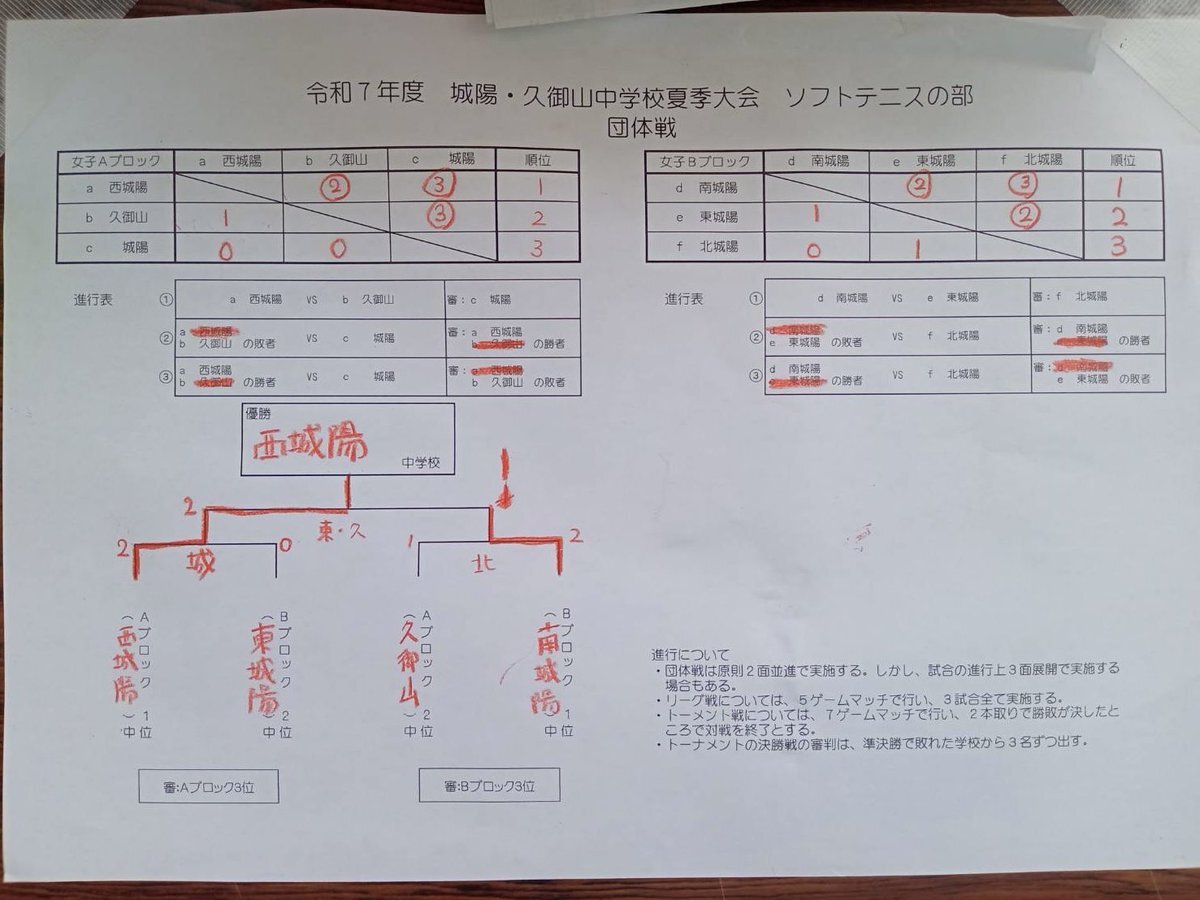 令和７年度　城陽・久御山中学校夏季大会　ソフトテニスの部
団体戦
女子Ａブロック　a 西城陽　b 久御山　c 城陽　順位
a 西城陽　②　③　1
b 久御山　1　③　2
c 城陽　0　0　3
進行表
① a 西城陽　VS　b 久御山　審：c 城陽
② a 西城陽 b 久御山 の敗者　VS　c 城陽　審：a 西城陽 b 久御山 の勝者
③ a 西城陽 b 久御山 の勝者　VS　c 城陽　審：a 西城陽 b 久御山 の敗者
女子Ｂブロック　d 南城陽　e 東城陽　f 北城陽　順位
d 南城陽　②　③　1
e 東城陽　1　②　2
f 北城陽　0　1　3
進行表
① d 南城陽　VS　e 東城陽　審：f 北城陽
② d 南城陽 e 東城陽 の敗者　VS　f 北城陽　審：d 南城陽 東城陽 の勝者
③ d 南城陽 e 東城陽 の勝者　VS　f 北城陽　審：d 南城陽 e 東城陽 の敗者
優勝
西城陽
中学校
2　1
東・久
2　城　0　1　北　2
Ａブロック１位
（西城陽）中
Ｂブロック２位
（東城陽）中
Ａブロック２位
（久御山）中
Ｂブロック１位
（南城陽）中
審:Aブロック3位
審:Bブロック3位
進行について
・団体戦は原則２面並進で実施する。しかし、試合の進行上３面展開で実施する
場合もある。
・リーグ戦については、５ゲームマッチで行い、３試合全て実施する。
・トーメント戦については、７ゲームマッチで行い、２本取りで勝敗が決したと
ころで対戦を終了とする。
・トーナメントの決勝戦の審判は、準決勝で敗れた学校から３名ずつ出す。